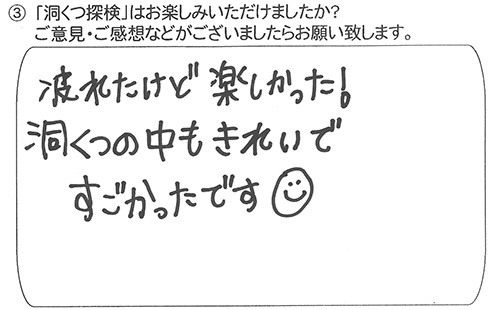 ③「洞くつ探検」はお楽しみいただけましたか?
ご意見・ご感想などがございましたらお願い致します。
疲れたけど楽しかった!
洞くつの中もきれいで
すごかったです